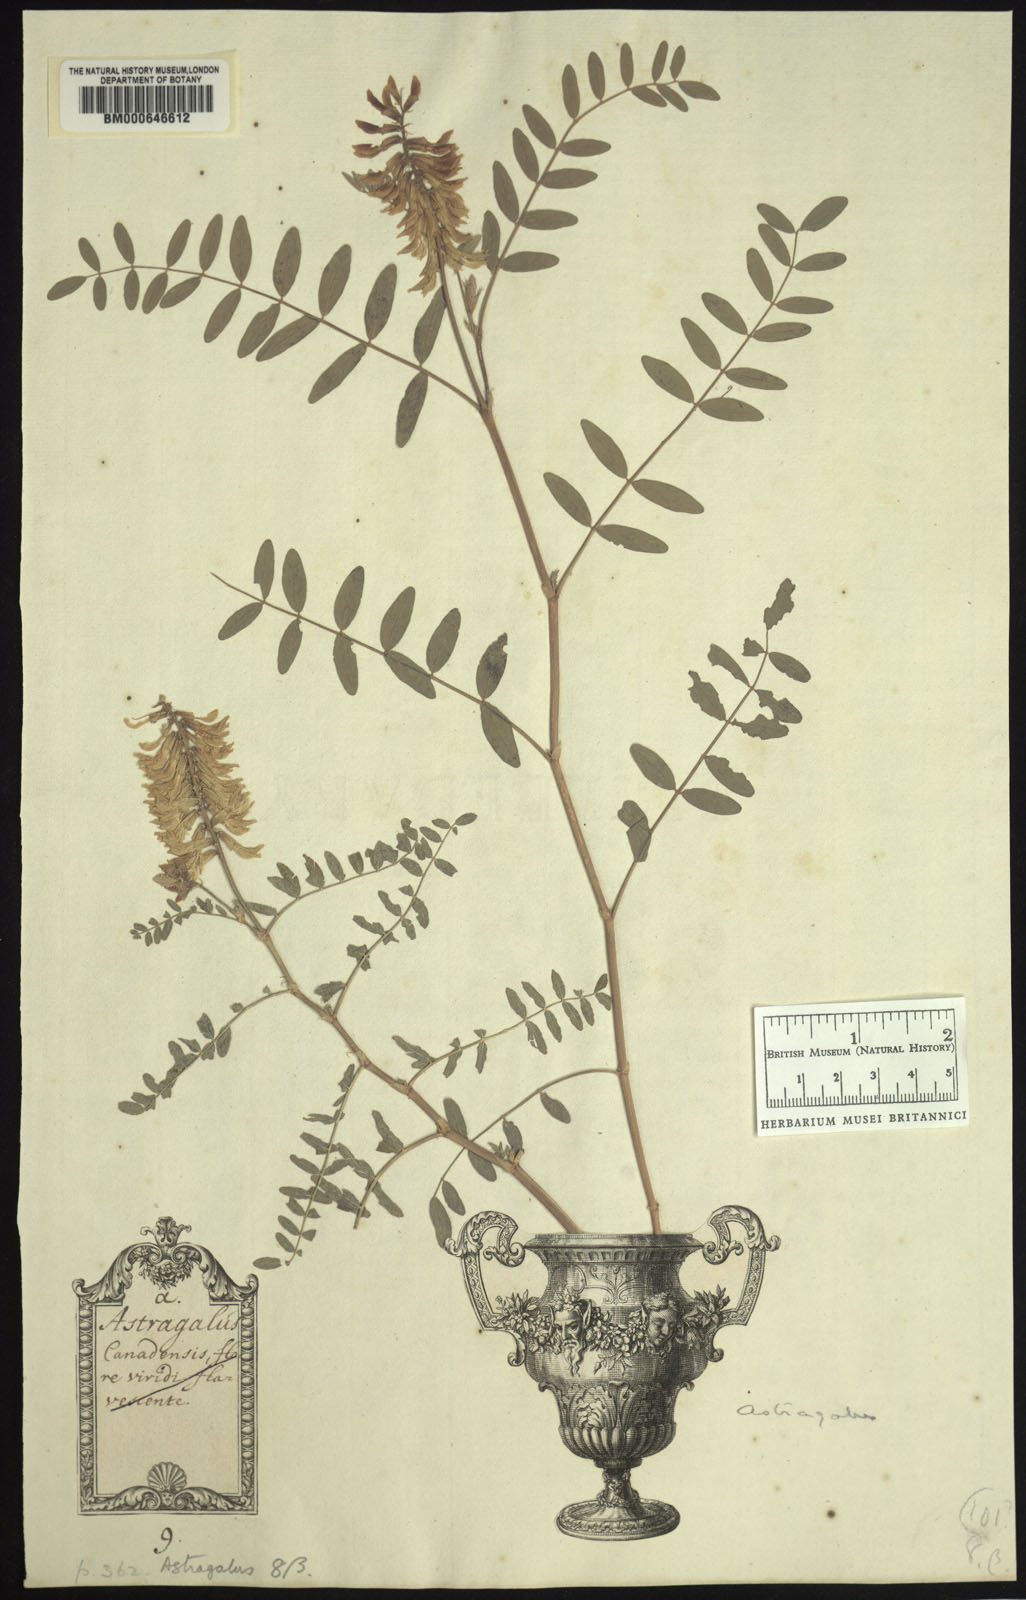 THE NATURAL HISTORY MUSEUM, LONDON
DEPARTMENT OF BOTANY
BM000646612
1 2
BRITISH MUSEUM (NATURAL HISTORY)
1 2 3 4 5
HERBARIUM MUSEI BRITANNICI
a.
Astragalus
Canadensis, flo
re viridi fla=
vescente.
Astragalus
9.
p. 362. Astragalus 8β.
8.β.